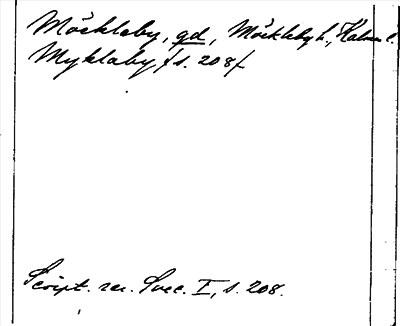 Möckleby, gd, Möckleby h., Kalmar l.
Myklaby /s. 208/
Script. rer. Svec. I, s. 208.